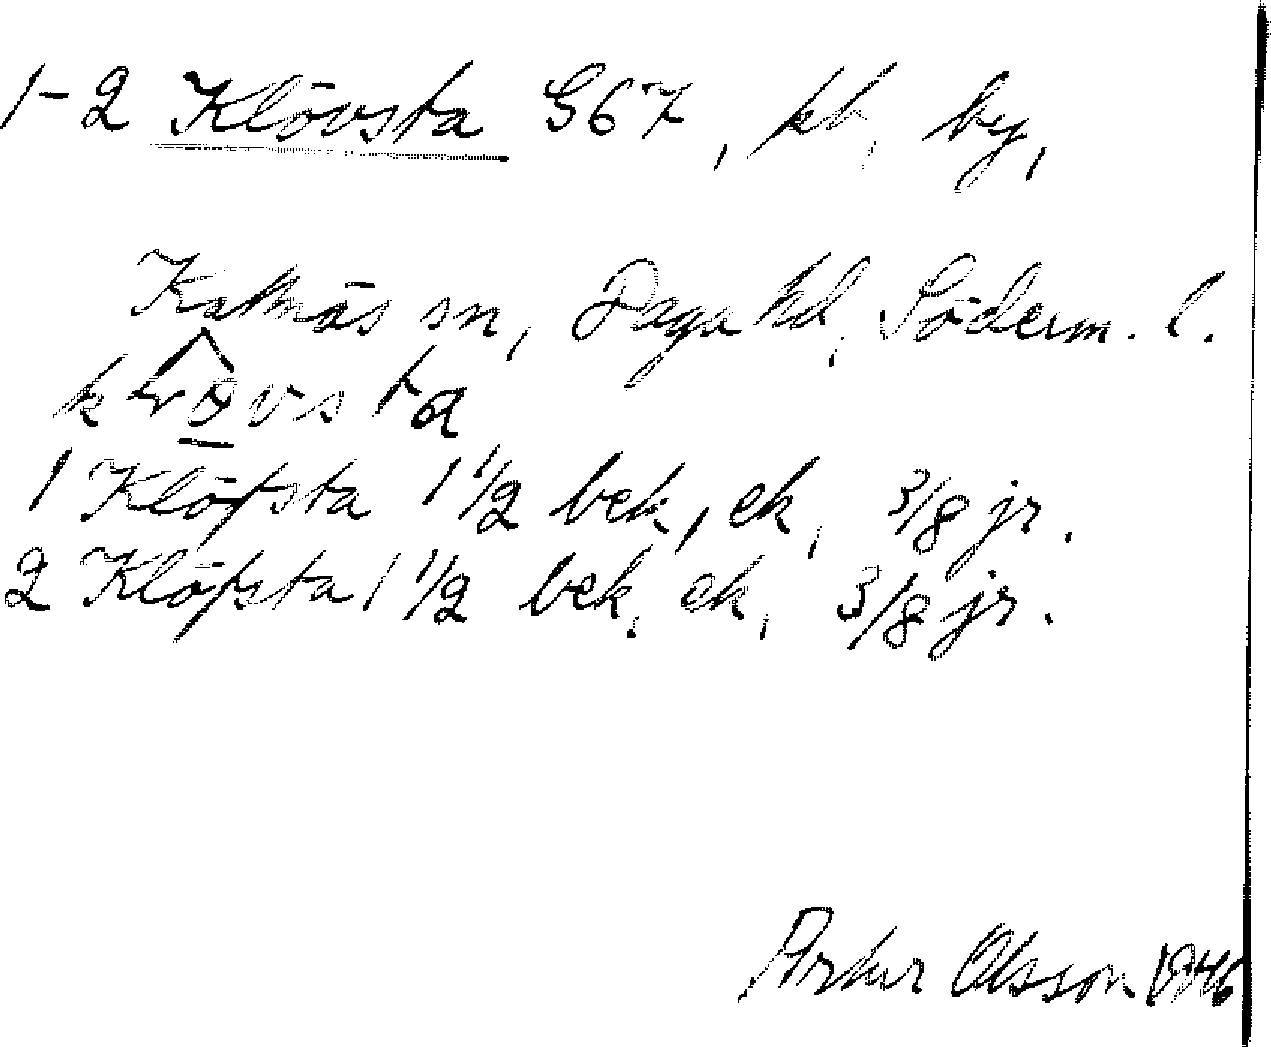 1-2 Klövsta G67, kb, by,
Kattnäs sn, Daga hd, Söderm. l.
1 Klöfsta 1 1/2 bek, ek, 3/8 jr.
2 Klöfsta 1 1/2 bek, ek, 3/8 jr.
Artur Olsson 1946